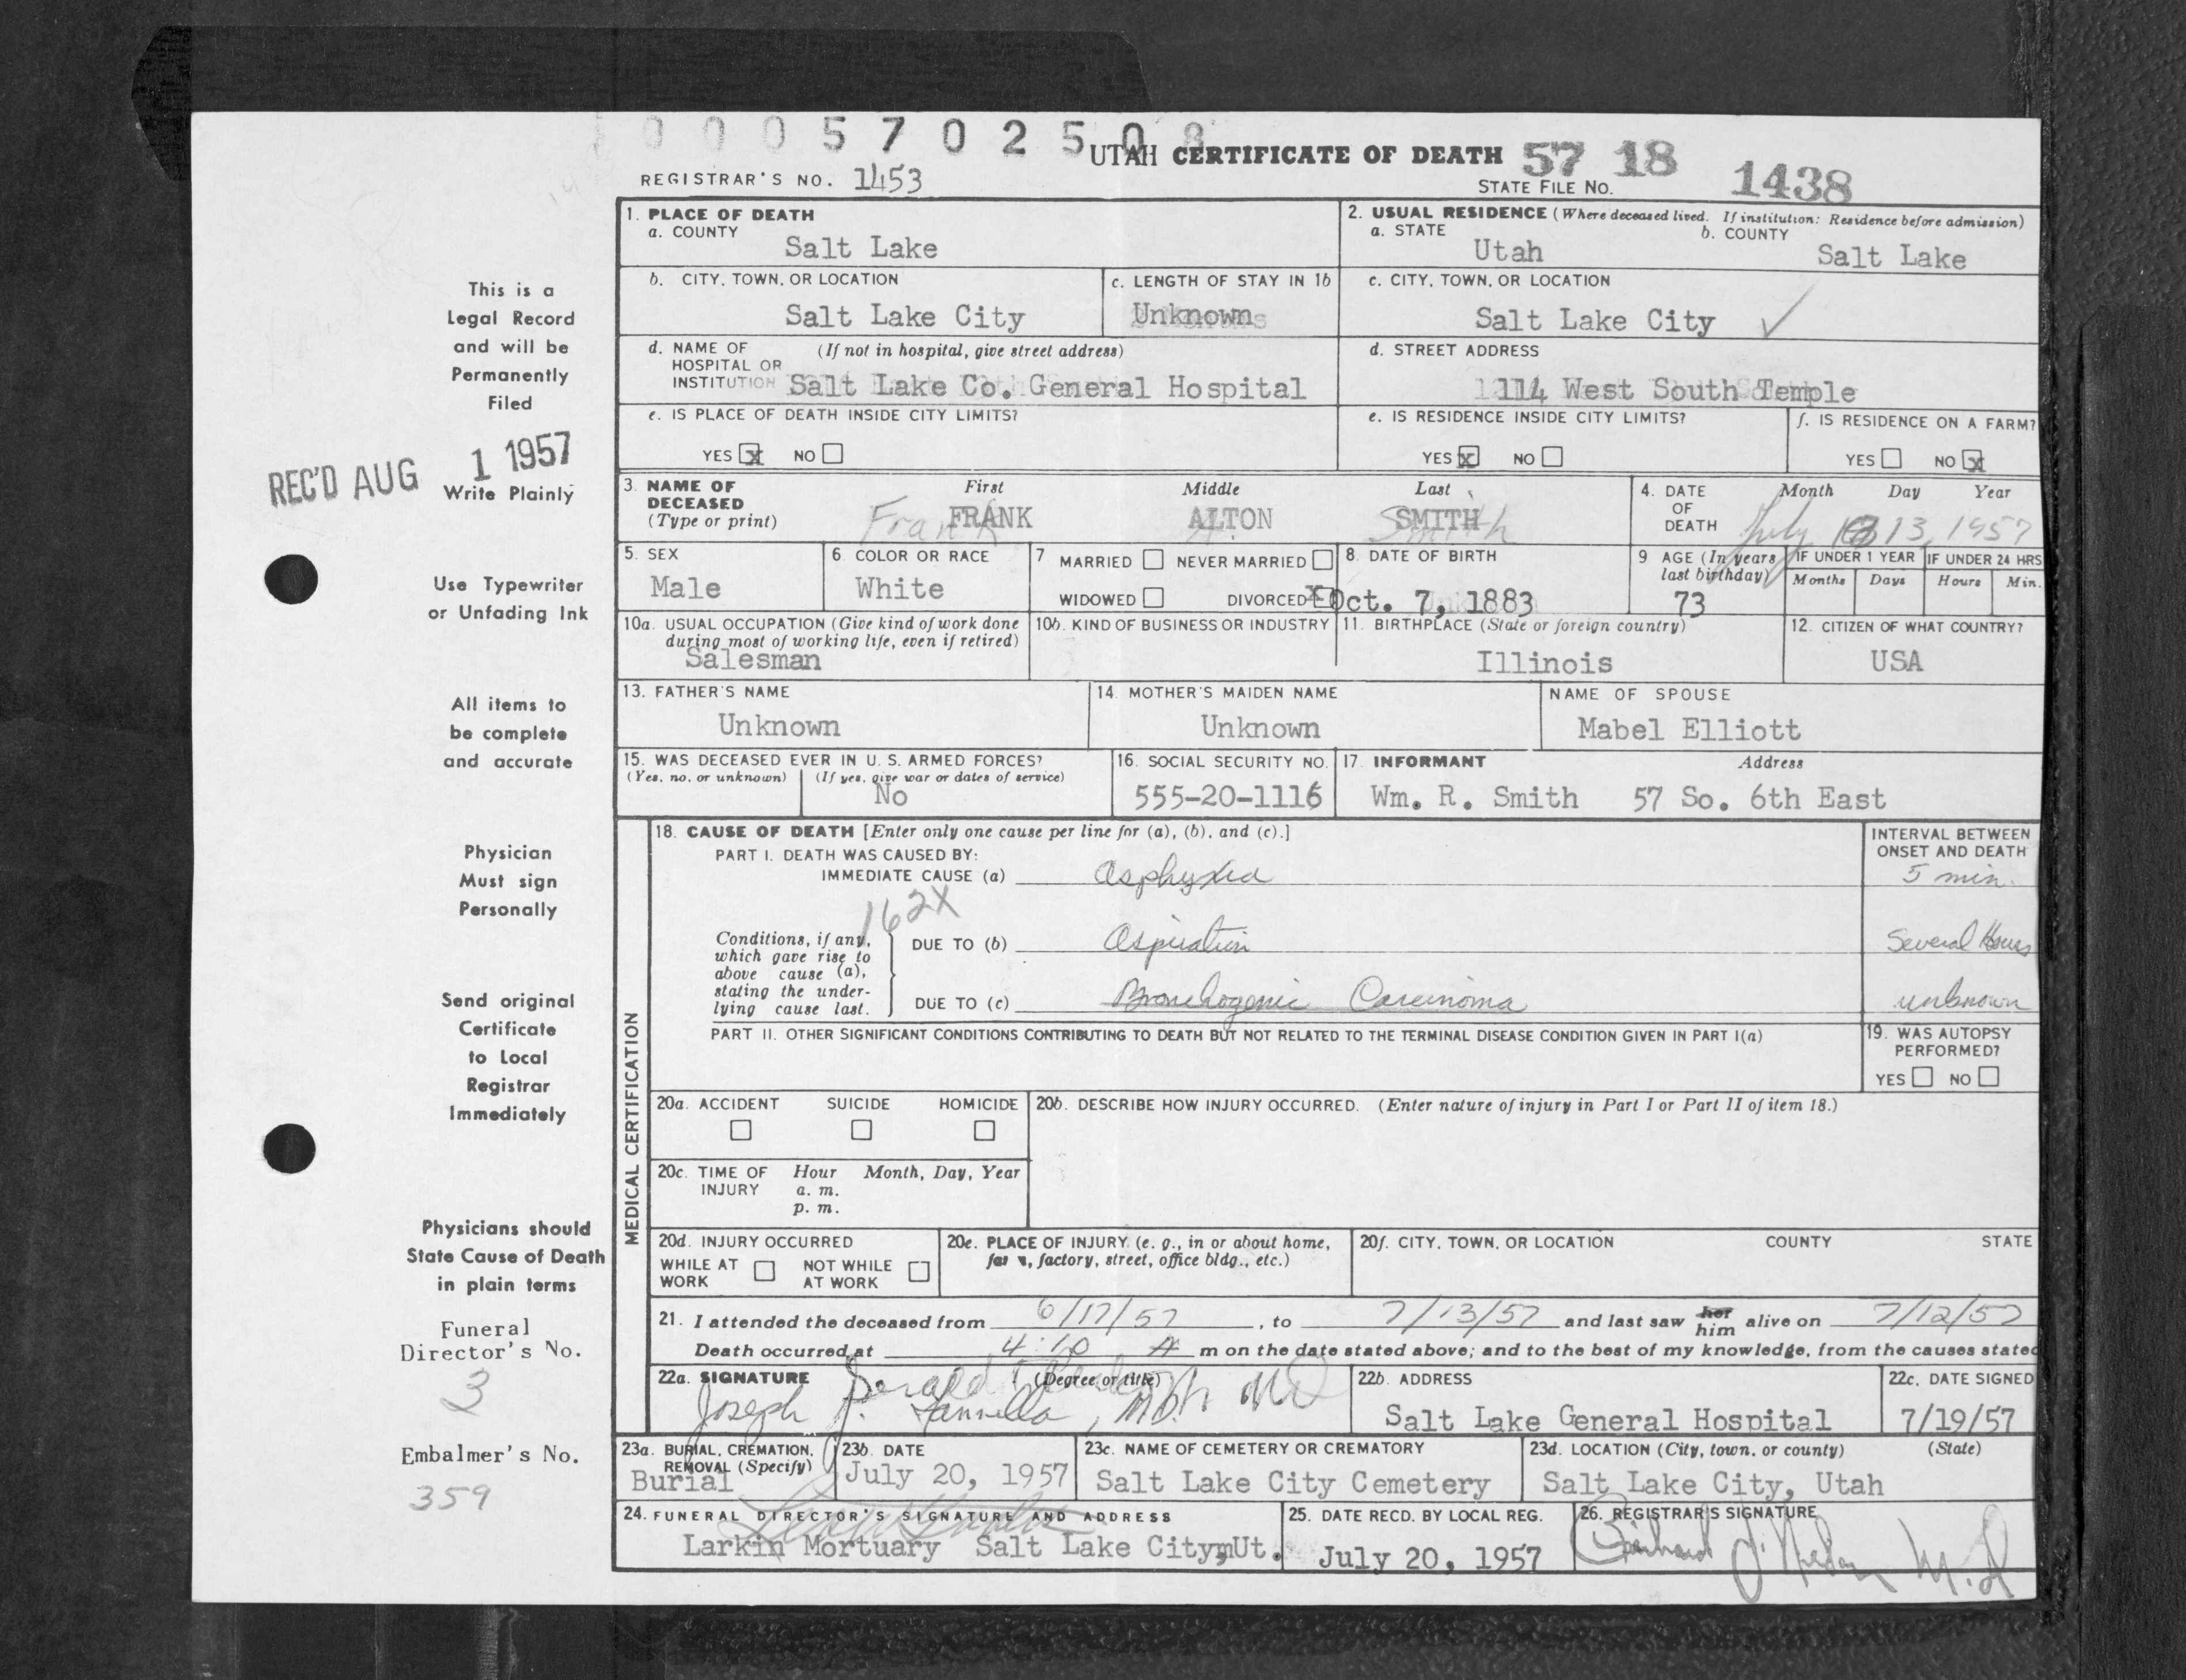 0005702508
UTAH CERTIFICATE OF DEATH 57 18 1438
REGISTRAR'S NO. 1453 STATE FILE NO.
1. PLACE OF DEATH
a. COUNTY Salt Lake
2. USUAL RESIDENCE (Where deceased lived. If institution: Residence before admission)
a. STATE Utah b. COUNTY Salt Lake
b. CITY, TOWN, OR LOCATION Salt Lake City
c. LENGTH OF STAY IN 1b Unknown
c. CITY, TOWN, OR LOCATION Salt Lake City ✓
d. NAME OF HOSPITAL OR INSTITUTION (If not in hospital, give street address) Salt Lake Co. General Hospital
d. STREET ADDRESS 114 West South Temple
e. IS PLACE OF DEATH INSIDE CITY LIMITS?
YES [x] NO [ ]
e. IS RESIDENCE INSIDE CITY LIMITS?
YES [x] NO [ ]
f. IS RESIDENCE ON A FARM?
YES [ ] NO [x]
3. NAME OF DECEASED (Type or print) First Middle Last
FRANK ALTON SMITH
Frank A. Smith
4. DATE OF DEATH Month Day Year
July 13, 1957
5. SEX Male
6. COLOR OR RACE White
7 MARRIED [ ] NEVER MARRIED [ ]
WIDOWED [ ] DIVORCED [x]
8. DATE OF BIRTH Oct. 7, 1883
9 AGE (In years last birthday) 73
IF UNDER 1 YEAR Months Days
IF UNDER 24 HRS Hours Min.
10a. USUAL OCCUPATION (Give kind of work done during most of working life, even if retired) Salesman
10b. KIND OF BUSINESS OR INDUSTRY
11. BIRTHPLACE (State or foreign country) Illinois
12. CITIZEN OF WHAT COUNTRY? USA
13. FATHER'S NAME Unknown
14. MOTHER'S MAIDEN NAME Unknown
NAME OF SPOUSE Mabel Elliott
15. WAS DECEASED EVER IN U. S. ARMED FORCES?
(Yes, no, or unknown) (If yes, give war or dates of service)
No
16. SOCIAL SECURITY NO. 555-20-1116
17. INFORMANT Address
Wm. R. Smith 57 So. 6th East
MEDICAL CERTIFICATION
18. CAUSE OF DEATH [Enter only one cause per line for (a), (b), and (c).]
INTERVAL BETWEEN ONSET AND DEATH
PART I. DEATH WAS CAUSED BY:
IMMEDIATE CAUSE (a) Asphyxia 5 min.
162X
Conditions, if any, which gave rise to above cause (a), stating the underlying cause last.
DUE TO (b) Aspiration Several Hours
DUE TO (c) Bronchogenic Carcinoma unknown
PART II. OTHER SIGNIFICANT CONDITIONS CONTRIBUTING TO DEATH BUT NOT RELATED TO THE TERMINAL DISEASE CONDITION GIVEN IN PART I(a)
19. WAS AUTOPSY PERFORMED?
YES [ ] NO [ ]
20a. ACCIDENT SUICIDE HOMICIDE
20b. DESCRIBE HOW INJURY OCCURRED. (Enter nature of injury in Part I or Part II of item 18.)
20c. TIME OF INJURY Hour Month, Day, Year
a. m.
p. m.
20d. INJURY OCCURRED
WHILE AT WORK [ ] NOT WHILE AT WORK [ ]
20e. PLACE OF INJURY (e. g., in or about home, farm, factory, street, office bldg., etc.)
20f. CITY, TOWN, OR LOCATION COUNTY STATE
21. I attended the deceased from 6/17/57, to 7/13/57 and last saw her him alive on 7/12/57
Death occurred at 4:10 A m on the date stated above; and to the best of my knowledge, from the causes stated
22a. SIGNATURE (Degree or title)
Joseph MD
22b. ADDRESS Salt Lake General Hospital
22c. DATE SIGNED 7/19/57
23a. BURIAL, CREMATION, REMOVAL (Specify) Burial
23b. DATE July 20, 1957
23c. NAME OF CEMETERY OR CREMATORY Salt Lake City Cemetery
23d. LOCATION (City, town, or county) (State) Salt Lake City, Utah
24. FUNERAL DIRECTOR'S SIGNATURE AND ADDRESS
Larkin Mortuary Salt Lake City, Ut.
25. DATE RECD. BY LOCAL REG. July 20, 1957
26. REGISTRAR'S SIGNATURE
M.D
This is a
Legal Record
and will be
Permanently
Filed
REC'D AUG 1 1957
Write Plainly
Use Typewriter
or Unfading Ink
All items to
be complete
and accurate
Physician
Must sign
Personally
Send original
Certificate
to Local
Registrar
Immediately
Physicians should
State Cause of Death
in plain terms
Funeral
Director's No.
3
Embalmer's No.
359